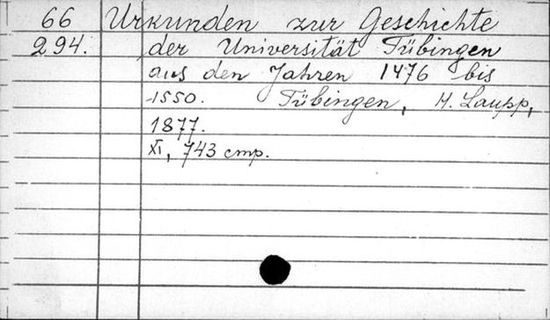 66 Urkunden zur Geschichte
294. der Universität Tübingen
aus den Jahren 1476 bis
1550. Tübingen, H. Laupp,
1877.
XI, 743 стр.